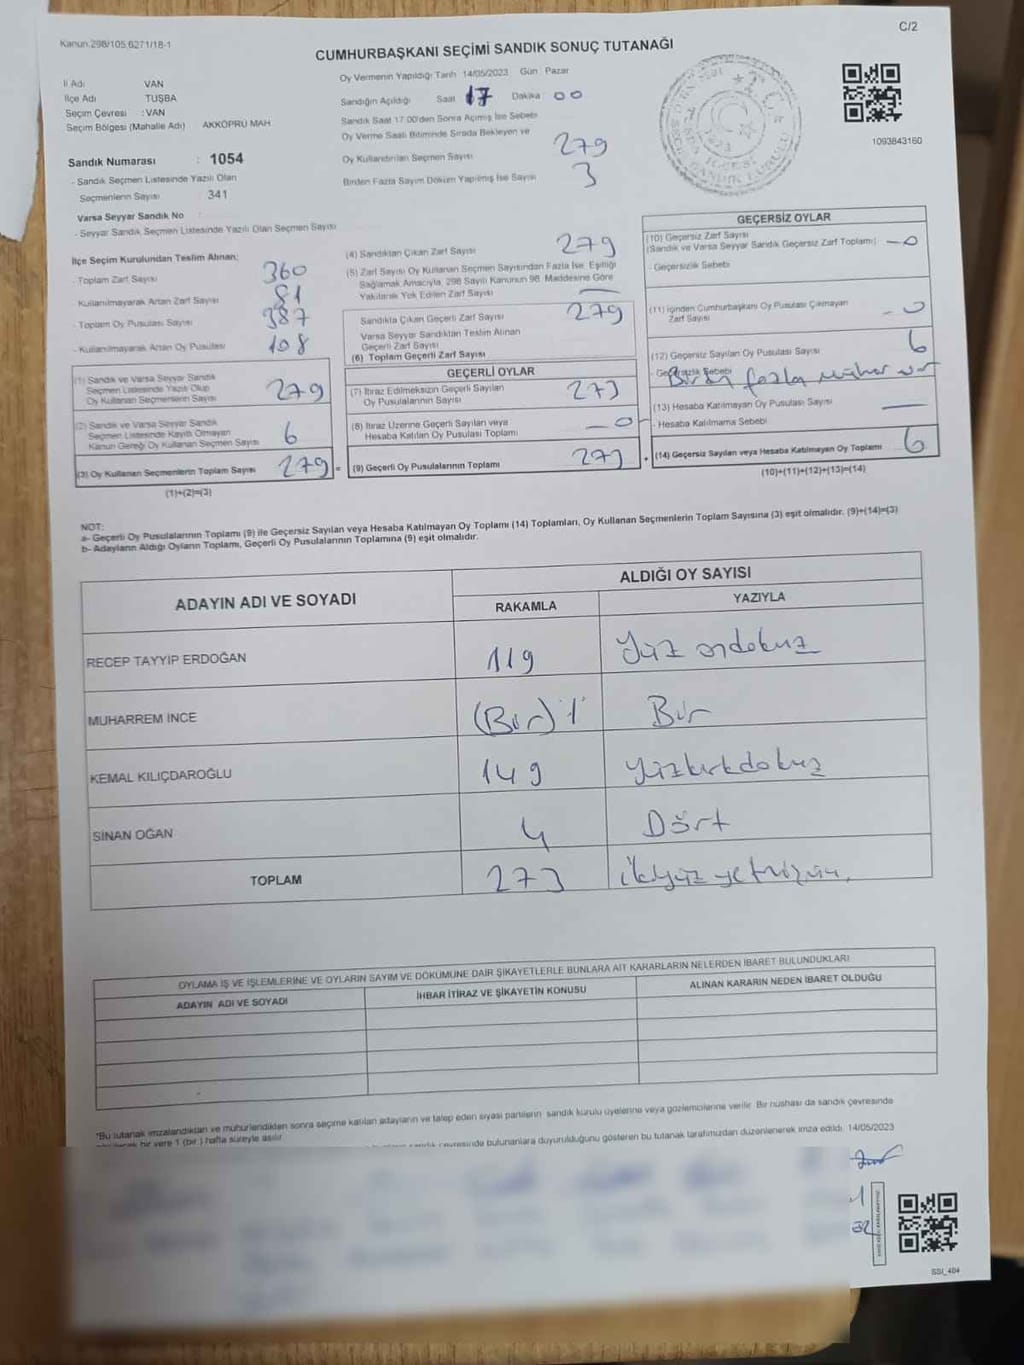 Kanun.298/105,6271/18-1
C/2
CUMHURBAŞKANI SEÇİMİ SANDIK SONUÇ TUTANAĞI
İl Adı VAN
İlçe Adı TUŞBA
Seçim Çevresi : VAN
Seçim Bölgesi (Mahalle Adı) AKKÖPRÜ MAH
Sandık Numarası : 1054
- Sandık Seçmen Listesinde Yazılı Olan
Seçmenlerin Sayısı : 341
Varsa Seyyar Sandık No
- Seyyar Sandık Seçmen Listesinde Yazılı Olan Seçmen Sayısı
Oy Vermenin Yapıldığı Tarih 14/05/2023 Gün Pazar
Sandığın Açıldığı Saat 17 Dakika 00
Sandık Saat 17:00'den Sonra Açılmış İse Sebebi
Oy Verme Saati Bitiminde Sırada Bekleyen ve
Oy Kullandırılan Seçmen Sayısı 279
Birden Fazla Sayım Döküm Yapılmış İse Sayısı 3
1093843160
İlçe Seçim Kurulundan Teslim Alınan;
- Toplam Zarf Sayısı 360
- Kullanılmayarak Artan Zarf Sayısı 81
- Toplam Oy Pusulası Sayısı 387
- Kullanılmayarak Artan Oy Pusulası 108
(1) Sandık ve Varsa Seyyar Sandık
Seçmen Listesinde Yazılı Olup
Oy Kullanan Seçmenlerin Sayısı 279
(2) Sandık ve Varsa Seyyar Sandık
Seçmen Listesinde Kayıtlı Olmayan
Kanun Gereği Oy Kullanan Seçmen Sayısı 6
(3) Oy Kullanan Seçmenlerin Toplam Sayısı 279 =
(1)+(2)=(3)
(4) Sandıktan Çıkan Zarf Sayısı 279
(5) Zarf Sayısı Oy Kullanan Seçmen Sayısından Fazla İse, Eşitliği
Sağlamak Amacıyla, 298 Sayılı Kanunun 98. Maddesine Göre
Yakılarak Yok Edilen Zarf Sayısı —
Sandıkta Çıkan Geçerli Zarf Sayısı 279
Varsa Seyyar Sandıktan Teslim Alınan
Geçerli Zarf Sayısı
(6) Toplam Geçerli Zarf Sayısı
GEÇERLİ OYLAR
(7) İtiraz Edilmeksizin Geçerli Sayılan
Oy Pusulalarının Sayısı 273
(8) İtiraz Üzerine Geçerli Sayılan veya
Hesaba Katılan Oy Pusulası Toplamı — 0
(9) Geçerli Oy Pusulalarının Toplamı 273 +
GEÇERSİZ OYLAR
(10) Geçersiz Zarf Sayısı
(Sandık ve Varsa Seyyar Sandık Geçersiz Zarf Toplamı) — 0
- Geçersizlik Sebebi
(11) İçinden Cumhurbaşkanı Oy Pusulası Çıkmayan
Zarf Sayısı - 0
(12) Geçersiz Sayılan Oy Pusulası Sayısı 6
- Geçersizlik Sebebi Birden fazla mühür var
(13) Hesaba Katılmayan Oy Pusulası Sayısı —
- Hesaba Katılmama Sebebi
(14) Geçersiz Sayılan veya Hesaba Katılmayan Oy Toplamı 6
(10)+(11)+(12)+(13)=(14)
NOT:
a- Geçerli Oy Pusulalarının Toplamı (9) ile Geçersiz Sayılan veya Hesaba Katılmayan Oy Toplamı (14) Toplamları, Oy Kullanan Seçmenlerin Toplam Sayısına (3) eşit olmalıdır. (9)+(14)=(3)
b- Adayların Aldığı Oyların Toplamı, Geçerli Oy Pusulalarının Toplamına (9) eşit olmalıdır.
ADAYIN ADI VE SOYADI
ALDIĞI OY SAYISI
RAKAMLA YAZIYLA
RECEP TAYYİP ERDOĞAN 119 Yüz ondokuz
MUHARREM İNCE (Bir) 1 Bir
KEMAL KILIÇDAROĞLU 149 Yüzkırkdokuz
SİNAN OĞAN 4 Dört
TOPLAM 273 ikiyüz yetmişüç
OYLAMA İŞ VE İŞLEMLERİNE VE OYLARIN SAYIM VE DÖKÜMÜNE DAİR ŞİKAYETLERLE BUNLARA AİT KARARLARIN NELERDEN İBARET BULUNDUKLARI
ADAYIN ADI VE SOYADI İHBAR İTİRAZ VE ŞİKAYETİN KONUSU ALINAN KARARIN NEDEN İBARET OLDUĞU
*Bu tutanak imzalandıktan ve mühürlendikten sonra seçime katılan adayların ve talep eden siyasi partilerin sandık kurulu üyelerine veya gözlemcilerine verilir. Bir nüshası da sandık çevresinde
bir yere 1 (bir) hafta süreyle asılır.
sandık çevresinde bulunanlara duyurulduğunu gösteren bu tutanak tarafımızdan düzenlenerek imza edildi. 14/05/2023
SSI_404